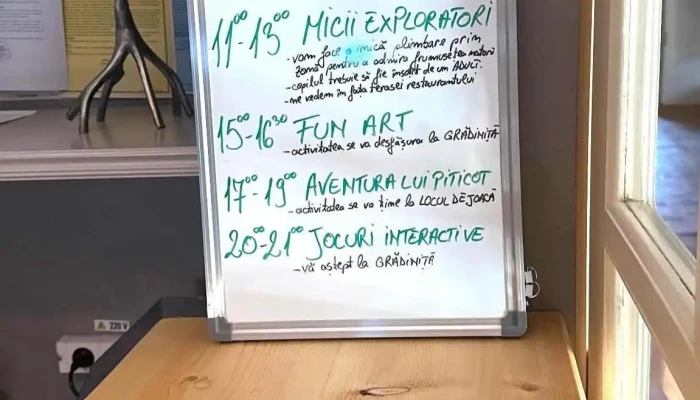 11⁰⁰-13⁰⁰ MICII EXPLORATORI
- vom face o mică plimbare prin
zonă pentru a admira frumusețea naturii
- copilul trebuie să fie însoțit de un ADULT.
- ne vedem în fața terasei restaurantului
15⁰⁰-16³⁰ FUN ART
- activitatea se va desfășura la GRĂDINIȚĂ
17⁰⁰-19⁰⁰ AVENTURA LUI PITICOT
- activitatea se va ține la LOCUL DE JOACĂ
20⁰⁰-21⁰⁰ JOCURI INTERACTIVE
- vă aștept la GRĂDINIȚĂ
220 V